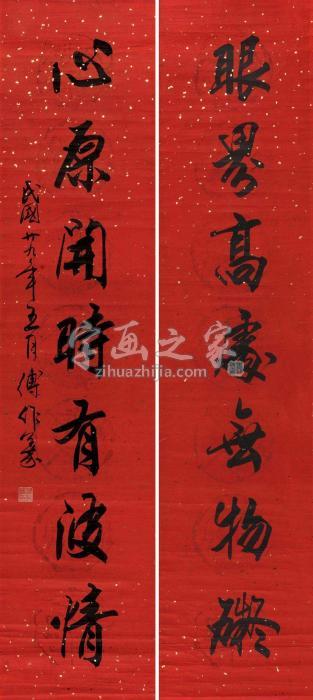 眼界高處無物礙
心原開時有波情
民國廿九年五月傅作義
字画之家
zihuazhijia.com